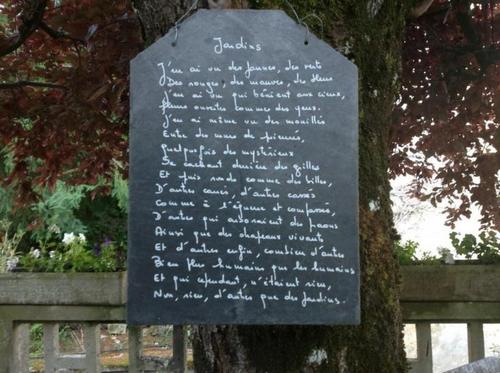 Jardins
J'en ai vu des jaunes, des verts
Des rouges, des mauves, des bleus
J'en ai vu qui béaient aux cieux,
fleurs ouvertes comme des yeux.
J'en ai même vu des mouillés
Entre des murs de pierres,
Quelquefois des mystérieux
Se cachant derrière des grilles
Et puis ronds comme des billes,
D'autres carrés, d'autres cassés
Comme à l'équerre et compassés,
D'autres qui arboraient des paons
Ainsi que des chapeaux vivants
Et d'autres enfin, combien d'autres
Bien plus humains que les humains
Et qui cependant, n'étaient rien,
Non, rien, d'autres que des jardins.